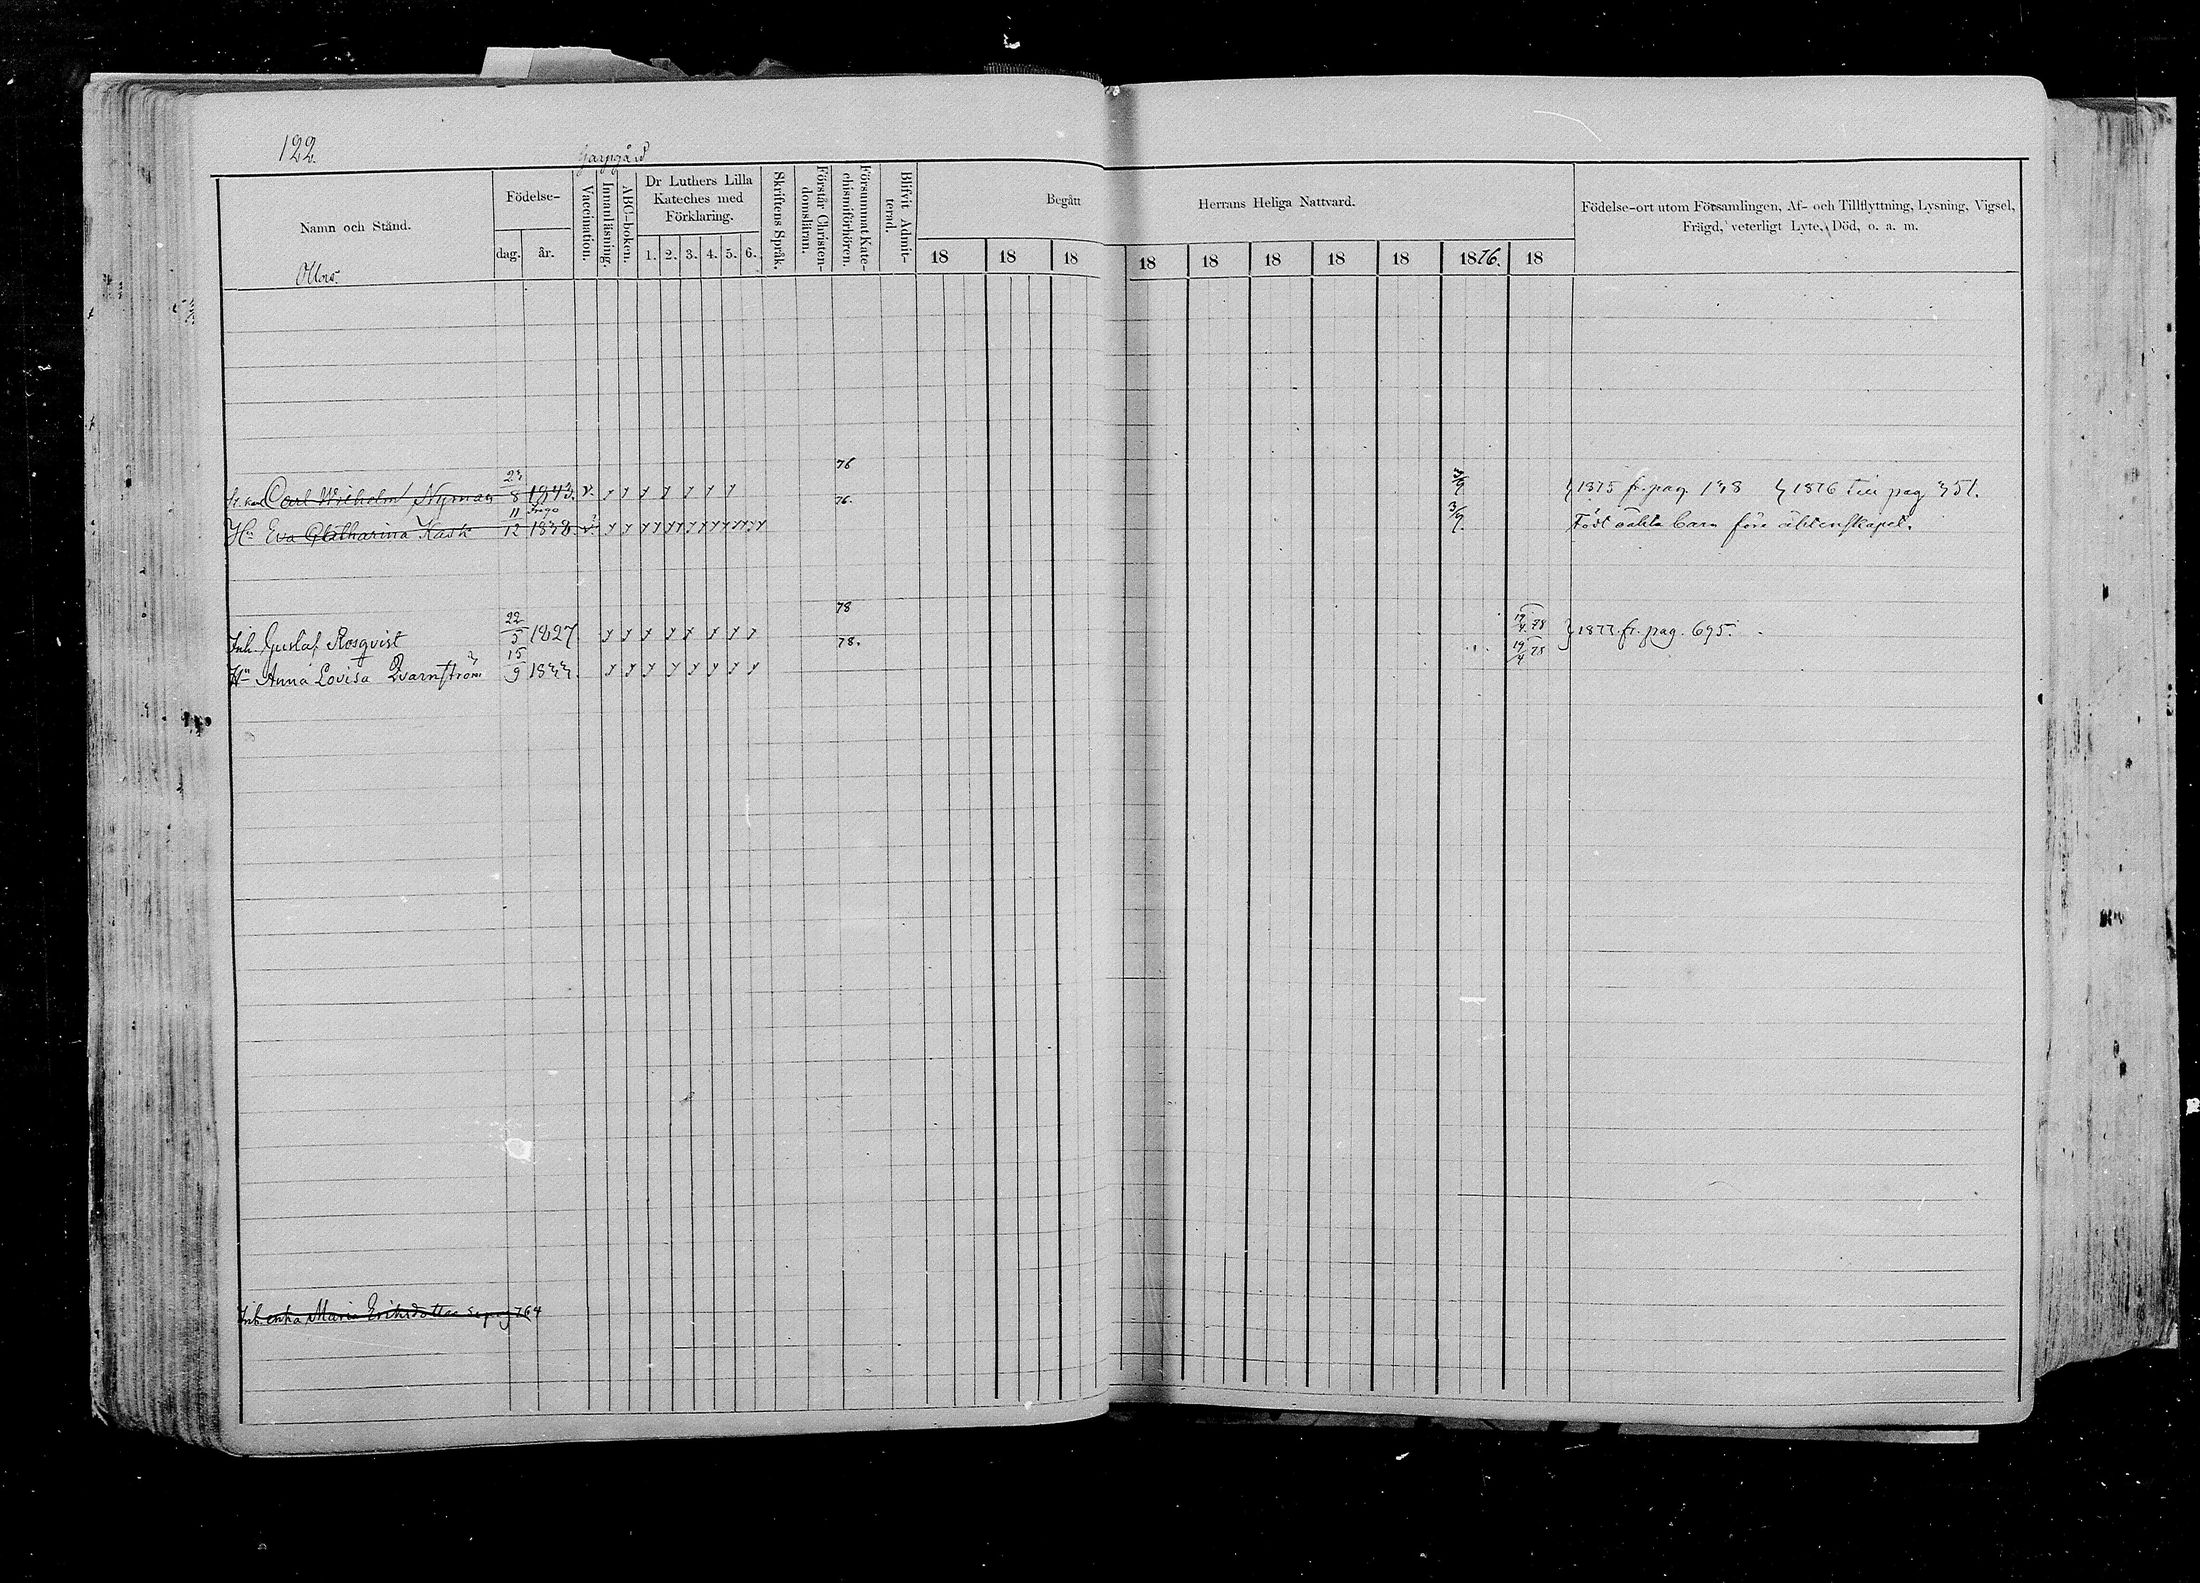 122.
Garpgård
Namn och Stånd.
Födelse-
dag. år.
Vaccination.
Innanläsning.
ABC-boken.
Dr Luthers Lilla Kateches med Förklaring.
1. 2. 3. 4. 5. 6.
Skriftens Språk.
Förstår Christen-domsläran.
Försummat Kate-chismiförhören.
Blifvit Admit-terad.
Begått Herrans Heliga Nattvard.
18 18 18 18 18 18 18 18 1876. 18
Födelse-ort utom Församlingen, Af- och Tillflyttning, Lysning, Vigsel,
Frägd, veterligt Lyte, Död, o. a. m.
76
Carl Wilhelm Nyman 8 1843. v. 1875 fr. pag. 138 1876 till pag 351.
76.
Hu Eva Catharina Kask 11/12 1838. v. 3/9. Född oäkta barn före äktenskapet.
78
Inh. Gustaf Rosqvist 22/5 1827 19/4 78 1877 fr. pag. 695.
78.
Hu Anna Lovisa Qvarnström 15/9 1833. 19/4 78
Inh. enka Maria Eriksdotter se pag 764